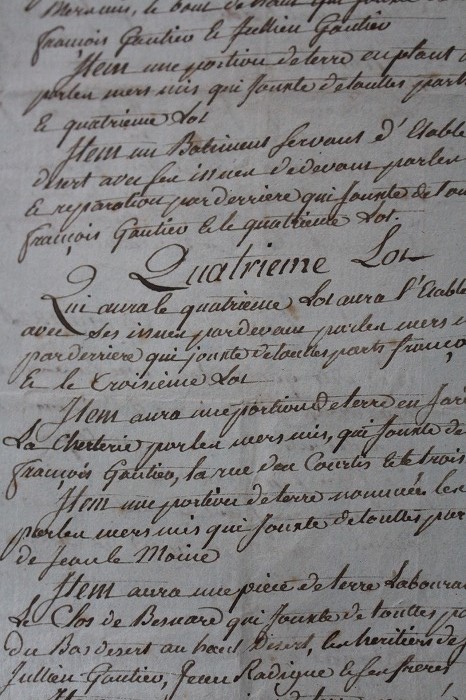 mersmis, le bout de haut qui jou
françois Gautier & Jullien Gautier
Item une portion de terre en plant
par les mersmis qui joute de touttes parts
& quatrieme Lot
Item un Batiment servant d'Etable
desert avec ses issues de devant par les
& reparation par derriere qui joute de tou
françois Gautier & le quatrieme Lot.
Quatrieme Lot
Qui aura le quatrieme Lot aura l'Etable
avec ses issues par devant par les mers
par derriere qui joute de touttes parts franço
& le troisieme Lot
Item aura une portion de terre en Jar
La Cherterie par les mersmis, qui joute de
françois Gautier, la rue des Courtis & le trois
Item une portion de terre nommée les
par les mersmis qui joute de touttes par
de Jean le Moine
Item aura une piece de terre Laboura
Le Clos de Besnard qui joute de touttes pa
du Bas desert au haut desert, les heritiers de
Jullien Gautier, Jean Radigue & ses freres